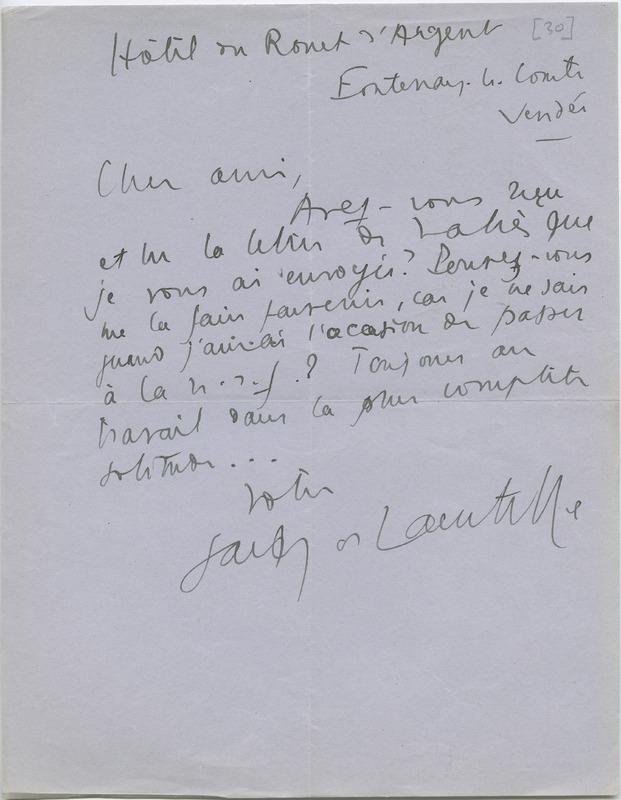 Hôtel du Rouet d'Argent [30]
Fontenay-le-Comte
Vendée
Cher ami,
Avez-vous reçu
et lu la lettre de que
je vous ai envoyée? Pouvez-vous
me la faire parvenir, car je ne sais
quand j'aurai l'occasion de passer
à la n.r.f.? Toujours au
travail dans la plus complète
solitude...
Votre
de Lacretelle